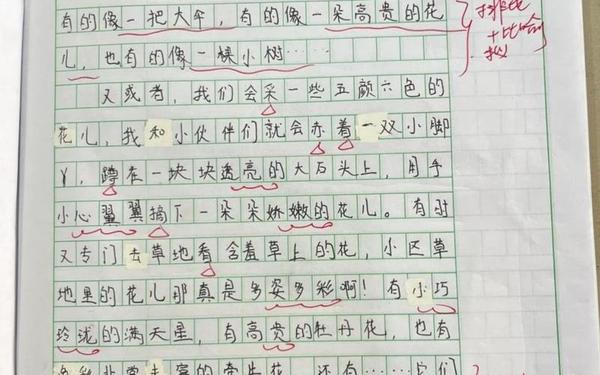 有的像一把大伞，有的像一朵高贵的花
儿，也有的像一棵小树……
又或者，我们会采一些五颜六色的
花儿，我和小伙伴们就会赤着一双小脚
丫，蹲在一块块透亮的大石头上，用手
小心翼翼摘下一朵朵娇嫩的花儿。有时
又专门去草地看含羞草上的花，小区草
地里的花儿那真是多姿多彩啊！有小巧
玲珑的满天星，有高贵的牡丹花，也有
的牵牛花，还有……它们
排比
+比喻
拟